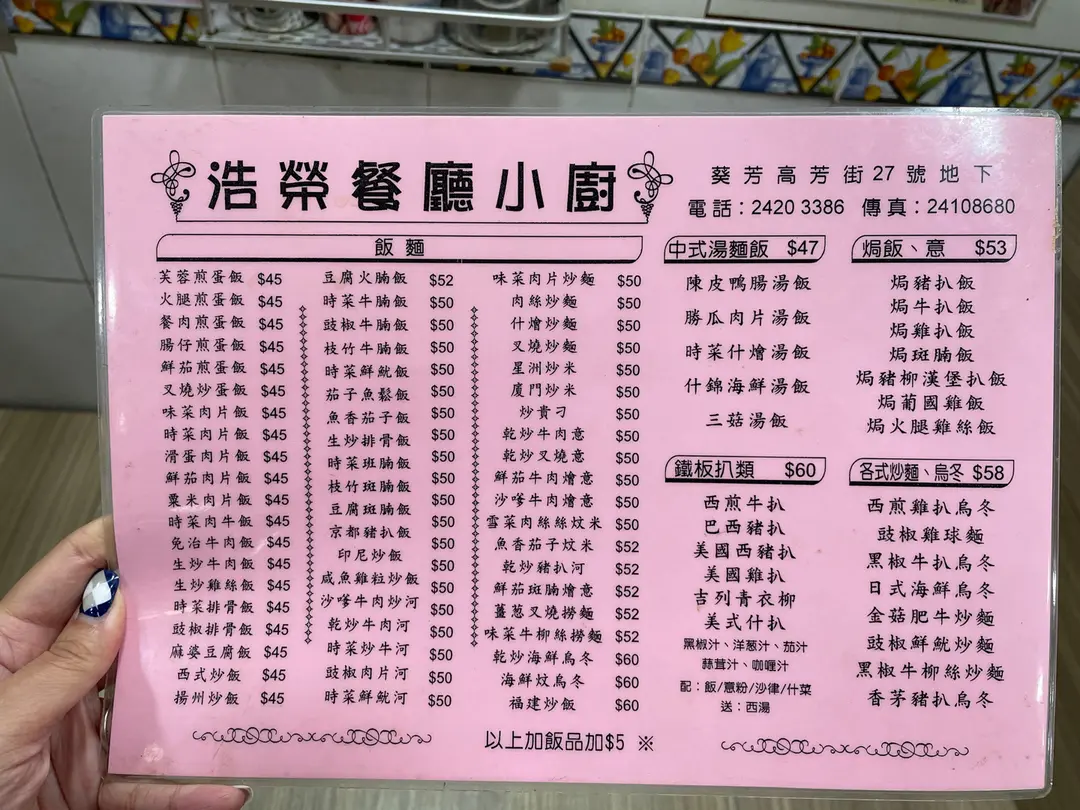 浩榮餐廳小廚
葵芳高芳街27號地下
電話：2420 3386 傳真：24108680
飯麵
芙蓉煎蛋飯 $45
火腿煎蛋飯 $45
餐肉煎蛋飯 $45
腸仔煎蛋飯 $45
鮮茄煎蛋飯 $45
叉燒炒蛋飯 $45
味菜肉片飯 $45
時菜肉片飯 $45
滑蛋肉片飯 $45
鮮茄肉片飯 $45
粟米肉片飯 $45
時菜肉牛飯 $45
免治牛肉飯 $45
生炒牛肉飯 $45
生炒雞絲飯 $45
時菜排骨飯 $45
豉椒排骨飯 $45
麻婆豆腐飯 $45
西式炒飯 $45
揚州炒飯 $45
豆腐火腩飯 $52
時菜牛腩飯 $50
豉椒牛腩飯 $50
枝竹牛腩飯 $50
時菜鮮魷飯 $50
茄子魚鬆飯 $50
魚香茄子飯 $50
生炒排骨飯 $50
時菜斑腩飯 $50
枝竹斑腩飯 $50
豆腐斑腩飯 $50
京都豬扒飯 $50
印尼炒飯 $50
咸魚雞粒炒飯 $50
沙嗲牛肉炒河 $50
乾炒牛肉河 $50
時菜炒牛河 $50
豉椒肉片河 $50
時菜鮮魷河 $50
味菜肉片炒麵 $50
肉絲炒麵 $50
什燴炒麵 $50
叉燒炒麵 $50
星洲炒米 $50
廈門炒米 $50
炒貴刁 $50
乾炒牛肉意 $50
乾炒叉燒意 $50
鮮茄牛肉燴意 $50
沙嗲牛肉燴意 $50
雪菜肉絲絲炆米 $50
魚香茄子炆米 $52
乾炒豬扒河 $52
鮮茄斑腩燴意 $52
薑蔥叉燒撈麵 $52
味菜牛柳絲撈麵 $52
乾炒海鮮烏冬 $60
海鮮炆烏冬 $60
福建炒飯 $60
以上加飯品加$5 ※
中式湯麵飯 $47
陳皮鴨腸湯飯
勝瓜肉片湯飯
時菜什燴湯飯
什錦海鮮湯飯
三菇湯飯
鐵板扒類 $60
西煎牛扒
巴西豬扒
美國西豬扒
美國雞扒
吉列青衣柳
美式什扒
黑椒汁、洋蔥汁、茄汁
蒜茸汁、咖喱汁
配：飯/意粉/沙律/什菜
送：西湯
焗飯、意 $53
焗豬扒飯
焗牛扒飯
焗雞扒飯
焗斑腩飯
焗豬柳漢堡扒飯
焗葡國雞飯
焗火腿雞絲飯
各式炒麵、烏冬 $58
西煎雞扒烏冬
豉椒雞球麵
黑椒牛扒烏冬
日式海鮮烏冬
金菇肥牛炒麵
豉椒鮮魷炒麵
黑椒牛柳絲炒麵
香茅豬扒烏冬